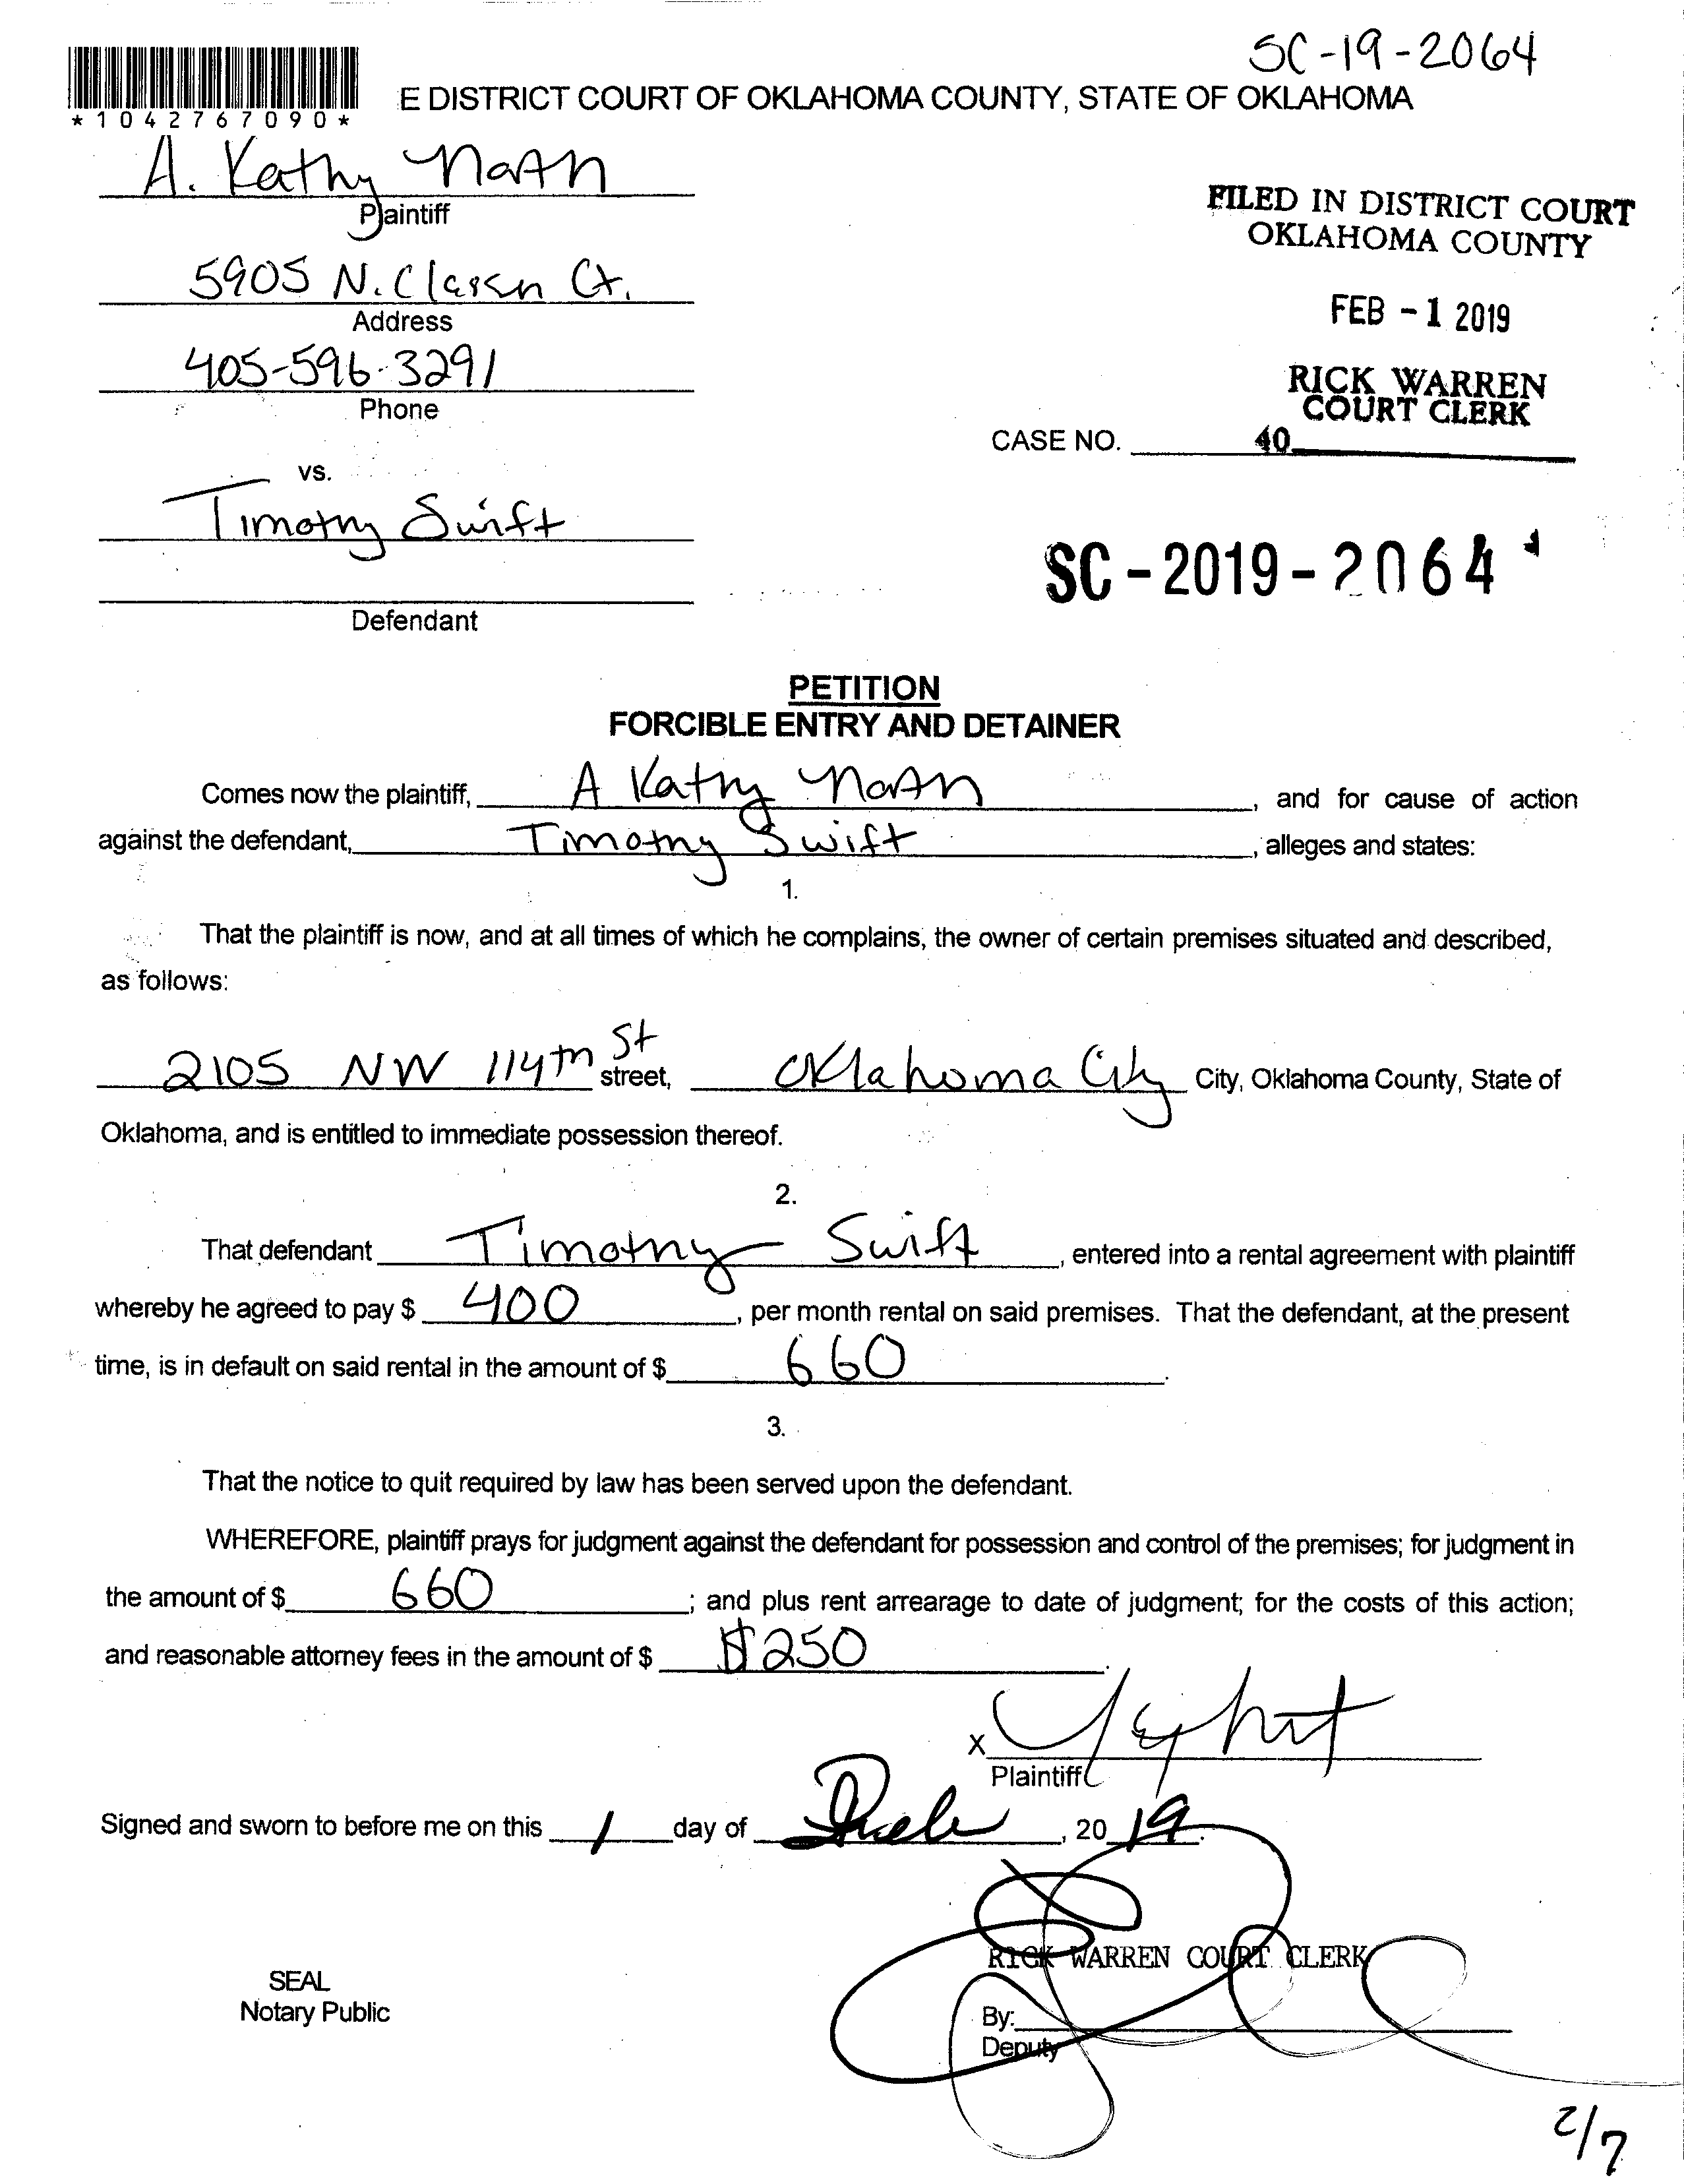 SC-19-2064
*1042767090*
E DISTRICT COURT OF OKLAHOMA COUNTY, STATE OF OKLAHOMA
A. Kathy North
Plaintiff
FILED IN DISTRICT COURT
OKLAHOMA COUNTY
5905 N. Classen Ct.
Address
FEB -1 2019
405-596-3291
Phone
RICK WARREN
COURT CLERK
CASE NO. 40
vs.
Timothy Swift
SC-2019-2064
Defendant
PETITION
FORCIBLE ENTRY AND DETAINER
Comes now the plaintiff, A Kathy North, and for cause of action
against the defendant, Timothy Swift, alleges and states:
1.
That the plaintiff is now, and at all times of which he complains, the owner of certain premises situated and described,
as follows:
2105 NW 114th St street, Oklahoma City City, Oklahoma County, State of
Oklahoma, and is entitled to immediate possession thereof.
2.
That defendant Timothy Swift, entered into a rental agreement with plaintiff
whereby he agreed to pay $ 400, per month rental on said premises. That the defendant, at the present
time, is in default on said rental in the amount of $ 660.
3.
That the notice to quit required by law has been served upon the defendant.
WHEREFORE, plaintiff prays for judgment against the defendant for possession and control of the premises; for judgment in
the amount of $ 660; and plus rent arrearage to date of judgment; for the costs of this action;
and reasonable attorney fees in the amount of $ $250.
X
Plaintiff
Signed and sworn to before me on this 1 day of , 2019.
RICK WARREN COURT CLERK
SEAL
Notary Public
By:
Deputy
2/7